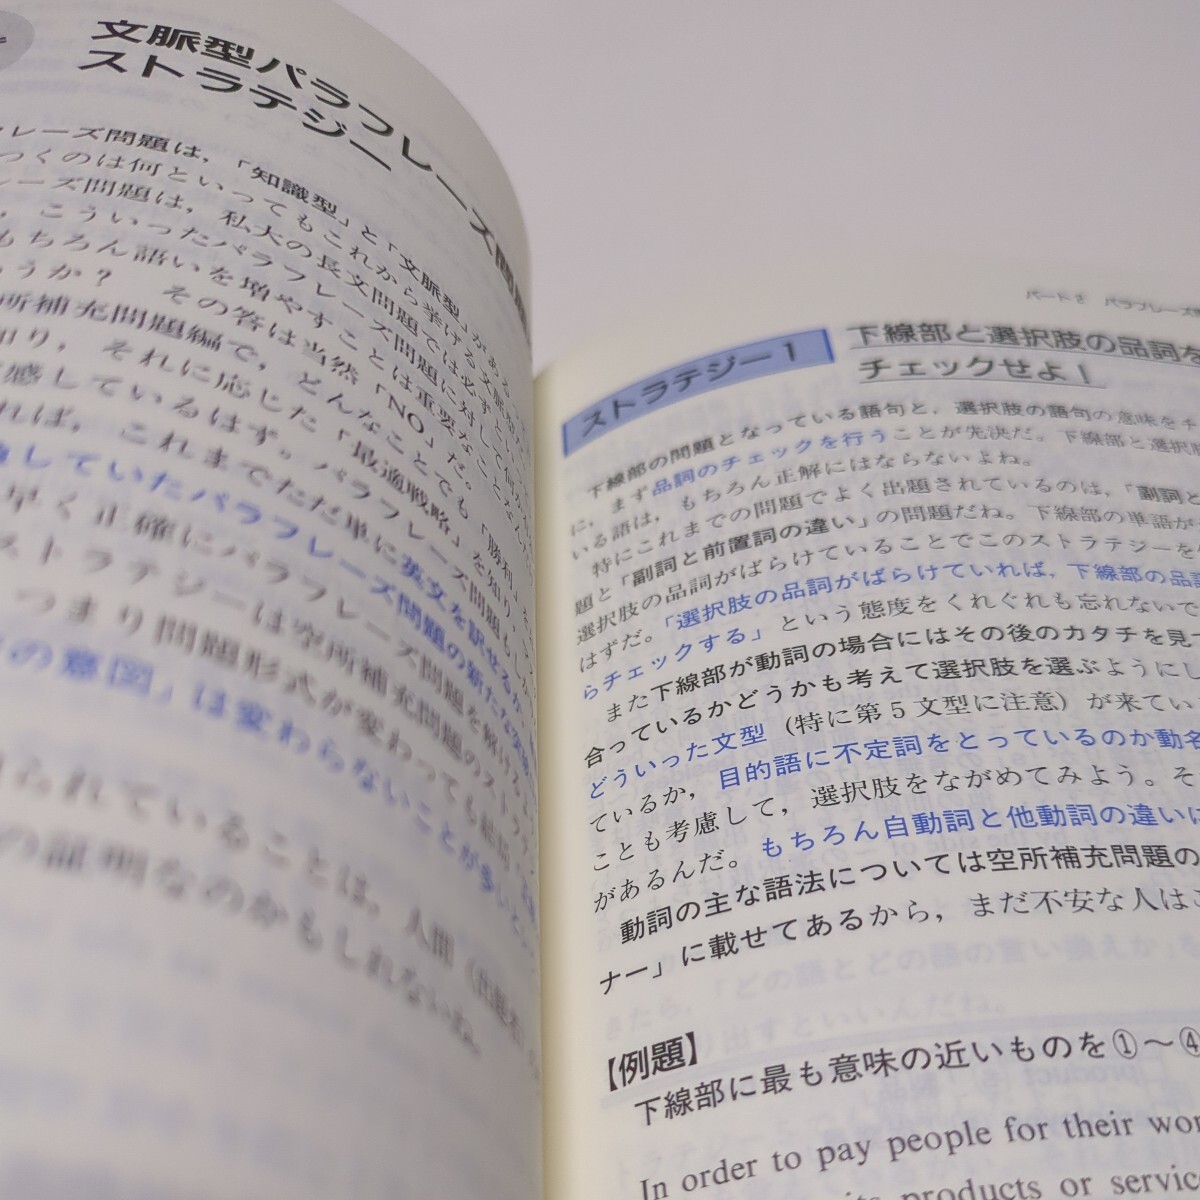 文脈型パラフレーズ問題
ストラテジー
レーズ問題は，「知識型」と「文脈型」がある。
つくのは何といってもこれから挙げる文脈型
レーズ問題は，私大の長文問題では必ず
，こういったパラフレーズ問題に対して何か
もちろん語いを増やすことは重要なこと
うか？　その答は当然「NO」だ。
所補充問題編で，どんなことでも「勝利」
知り，それに応じた「最適戦略」を知り
感しているはず。パラフレーズ問題もしか
れば，これまでただ単に英文を訳せるか
していたパラフレーズ問題の新たな
早く正確にパラフレーズ問題を解け
ストラテジーは空所補充問題のストラ
つまり問題形式が変わっても結局
の意図」は変わらないことが多い
られていることは，人間（出題者）
の証明なのかもしれないね。
パート2　パラフレーズ
ストラテジー1
下線部と選択肢の品詞を
チェックせよ！
下線部の問題となっている語句と，選択肢の語句の意味をチ
に，まず品詞のチェックを行うことが先決だ。下線部と選択
いる語は，もちろん正解にはならないよね。
特にこれまでの問題でよく出題されているのは，「副詞と
題と「副詞と前置詞の違い」の問題だね。下線部の単語が
選択肢の品詞がばらけていることでこのストラテジーを
はずだ。「選択肢の品詞がばらけていれば，下線部の品詞
らチェックする」という態度をくれぐれも忘れないで
また下線部が動詞の場合にはその後のカタチを見て
合っているかどうかも考えて選択肢を選ぶようにし
どういった文型（特に第5文型に注意）が来てい
ているか，目的語に不定詞をとっているのか動名
ことも考慮して，選択肢をながめてみよう。そ
があるんだ。もちろん自動詞と他動詞の違いに
動詞の主な語法については空所補充問題の
ナー」に載せてあるから，まだ不安な人はこ
【例題】
下線部に最も意味の近いものを①～④
In order to pay people for their wor
its products or servic